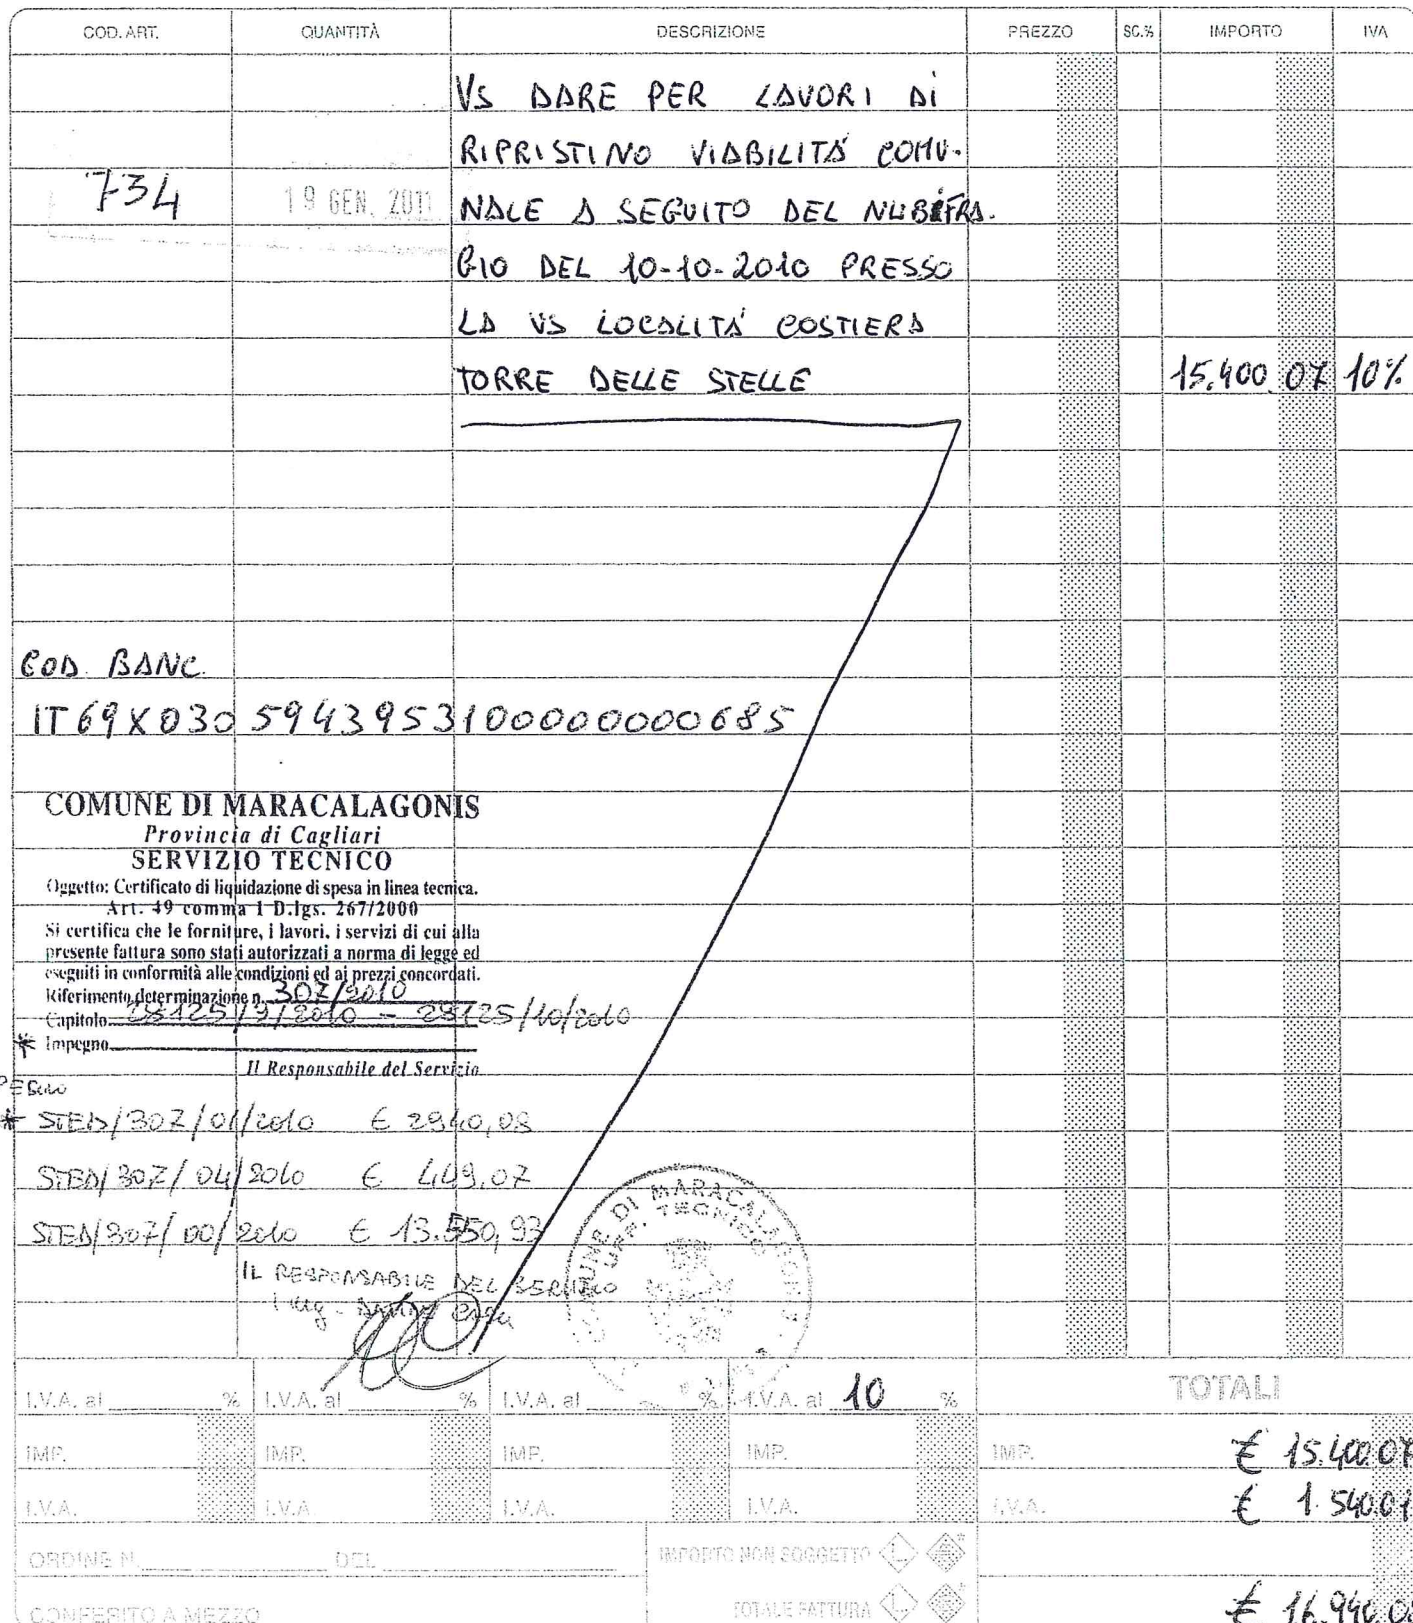 COD. ART. QUANTITÀ DESCRIZIONE PREZZO SC.% IMPORTO IVA
VS DARE PER LAVORI DI
RIPRISTINO VIABILITÀ COMU-
734 19 GEN. 2011 NALE A SEGUITO DEL NUBIFRA-
GIO DEL 10-10-2010 PRESSO
LA VS LOCALITÀ COSTIERA
TORRE DELLE STELLE 15.400.07 10%
COD. BANC.
IT69X0305943953100000000685
COMUNE DI MARACALAGONIS
Provincia di Cagliari
SERVIZIO TECNICO
Oggetto: Certificato di liquidazione di spesa in linea tecnica.
Art. 49 comma 1 D.lgs. 267/2000
Si certifica che le forniture, i lavori, i servizi di cui alla
presente fattura sono stati autorizzati a norma di legge ed
eseguiti in conformità alle condizioni ed ai prezzi concordati.
Riferimento determinazione n. 307/2010
Capitolo 28125/9/2010 - 28125/10/2010
* Impegno
Il Responsabile del Servizio
* STED/307/01/2010 € 2940,08
STED/307/04/2010 € 449,07
STED/307/00/2010 € 13.550,93
COMUNE DI MARACALAGONIS
UFF. TECNICO
IL RESPONSABILE DEL SERVIZIO
I.V.A. al % I.V.A. al % I.V.A. al % I.V.A. al 10 % TOTALI
IMP. IMP. IMP. IMP. IMP. € 15.400.07
I.V.A. I.V.A I.V.A. I.V.A. I.V.A. € 1.540.01
ORDINE N. DEL IMPORTO NON SOGGETTO L
CONFERITO A MEZZO TOTALE FATTURA L € 16.940.08